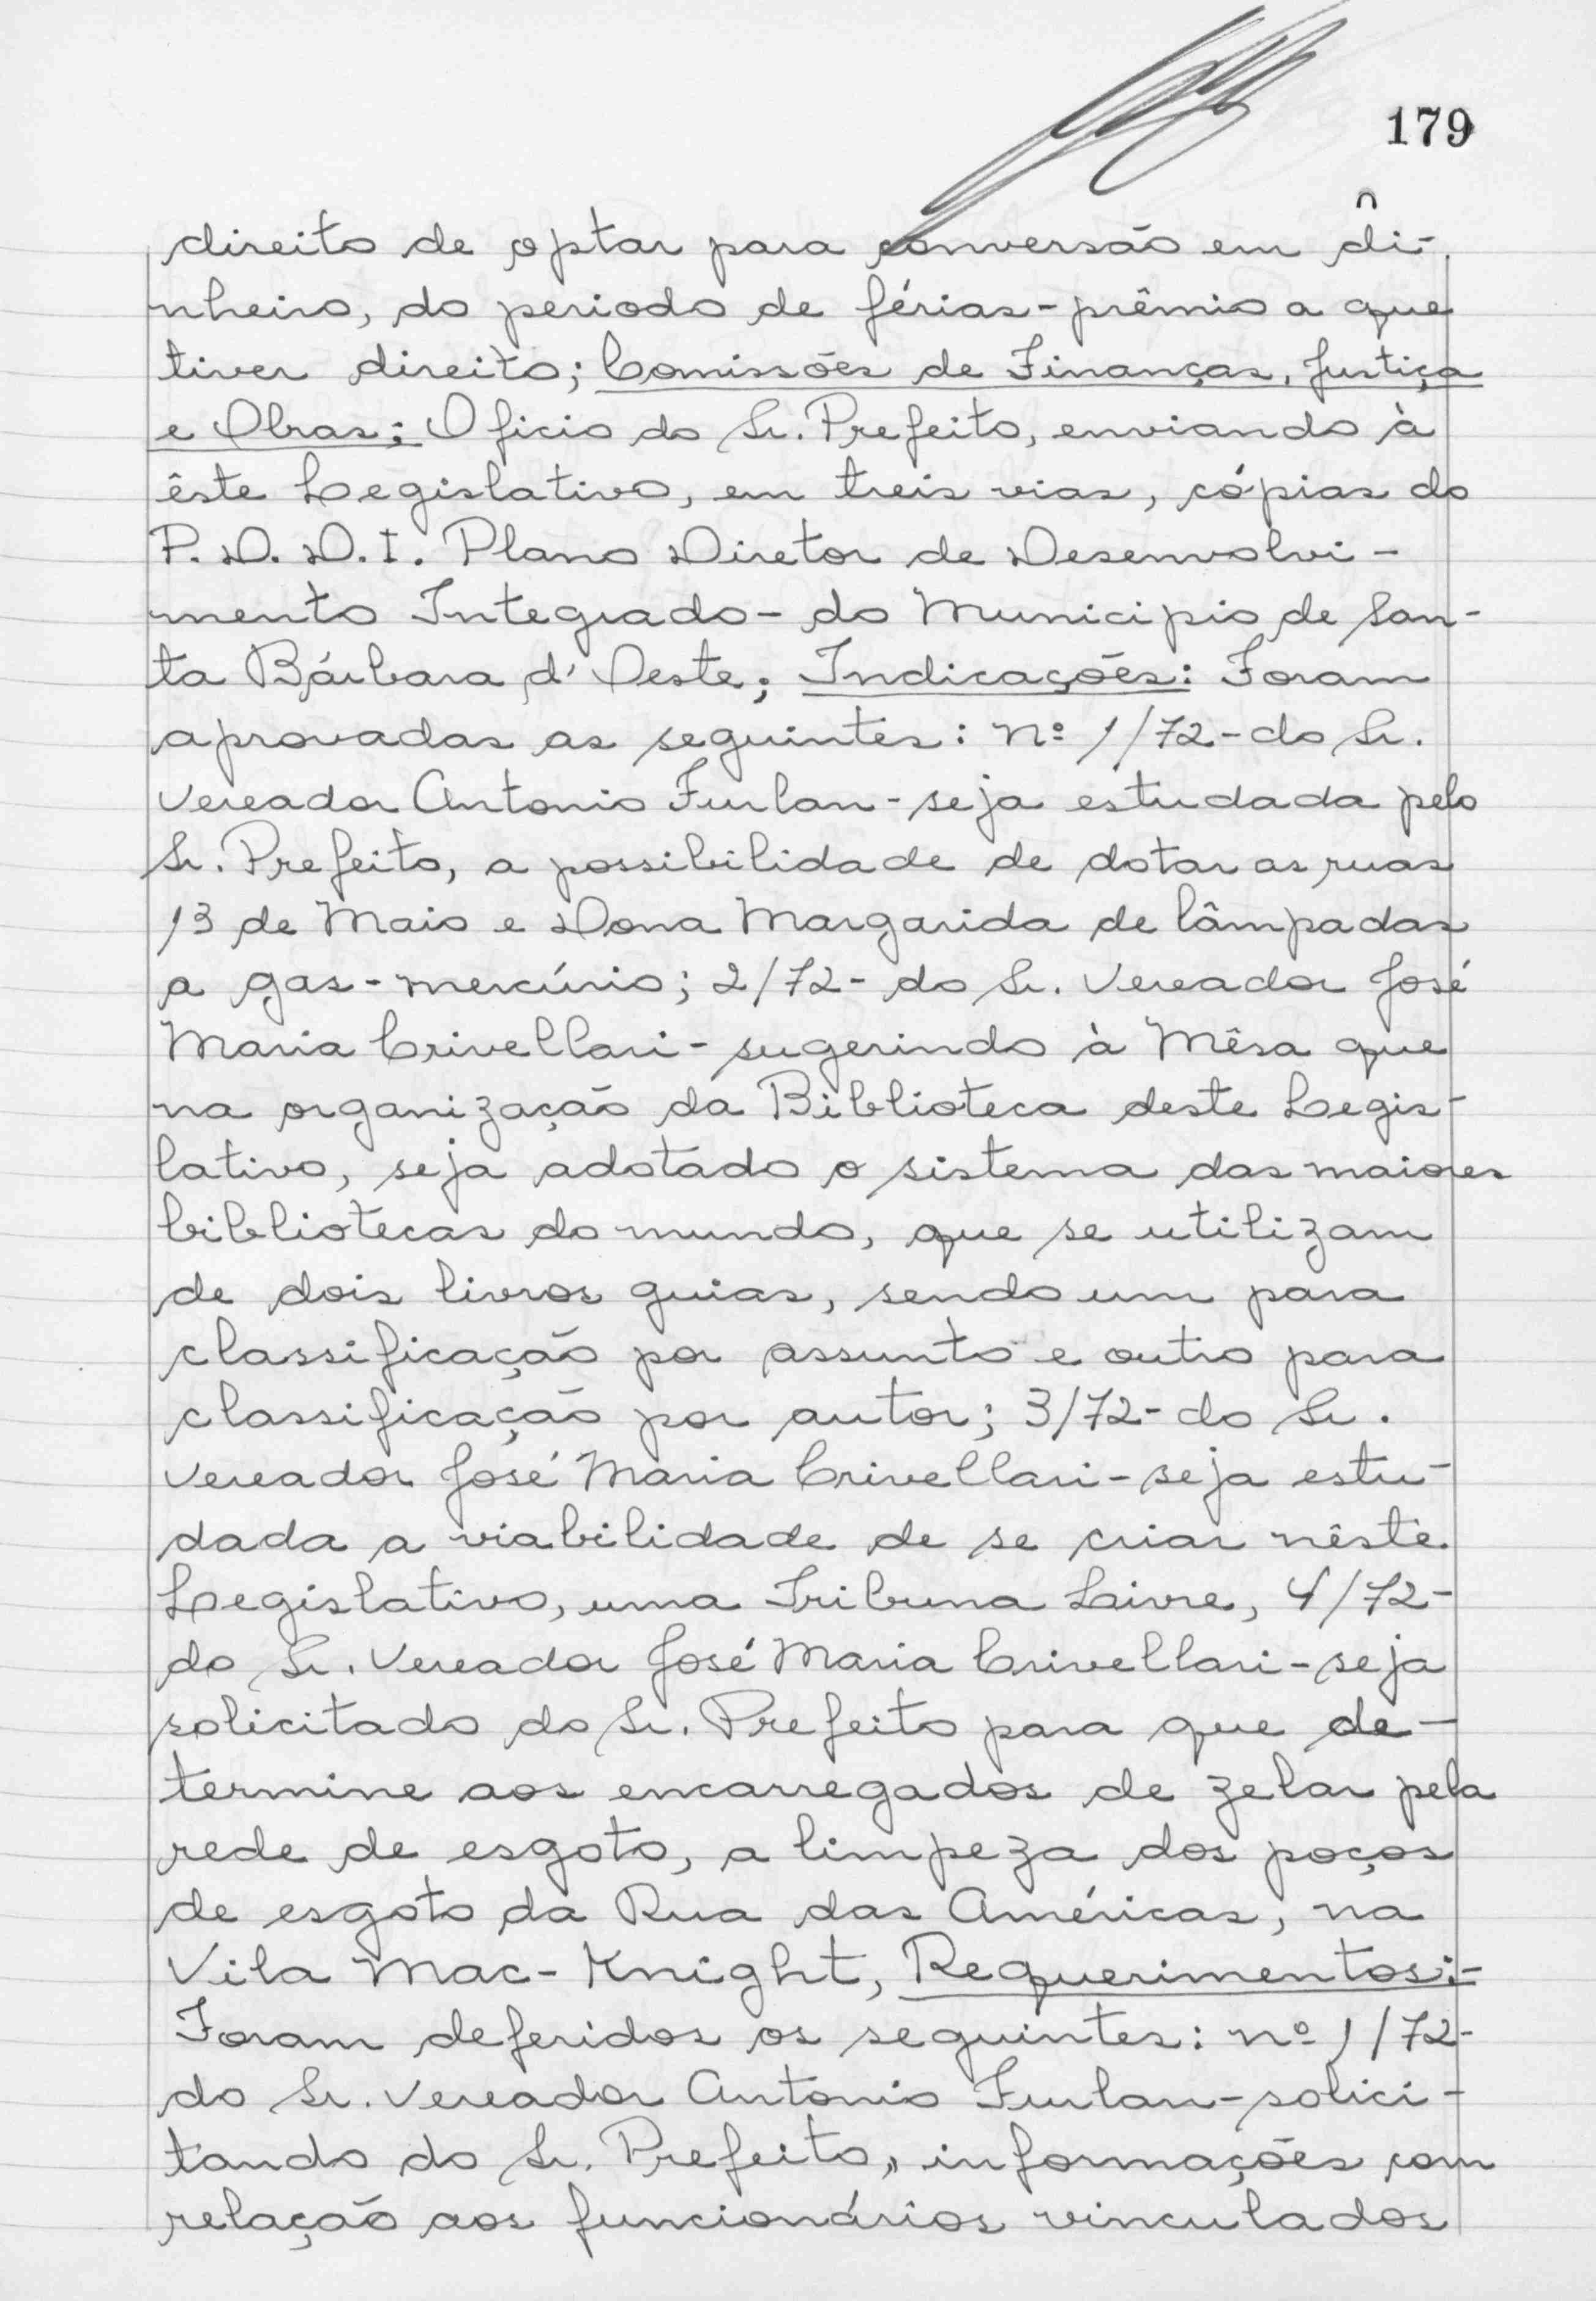 179
direito de optar para conversão em di-
nheiro, do periodo de férias-prêmio a que
tiver direito; Comissões de Finanças, Justiça
e Obras: Oficio do Sr. Prefeito, enviando à
êste Legislativo, em treis vias, cópias do
P. D. D. I. Plano Diretor de Desenvolvi-
mento Integrado- do Municipio de San-
ta Bárbara d'Oeste; Indicações: Foram
aprovadas as seguintes: nº 1/72-do Sr.
Vereador Antonio Furlan-seja estudada pelo
Sr. Prefeito, a possibilidade de dotar as ruas
13 de Maio e Dona Margarida de lâmpadas
a gas-mercúrio; 2/72- do Sr. Vereador José
Maria Crivellari- sugerindo à Mêsa que
na organização da Biblioteca deste Legis-
lativo, seja adotado o sistema das maiores
bibliotecas do mundo, que se utilizam
de dois livros guias, sendo um para
classificação por assunto e outro para
classificação por autor; 3/72- do Sr.
Vereador José Maria Crivellari-seja estu-
dada a viabilidade de se criar nêste
Legislativo, uma Tribuna Livre, 4/72-
do Sr. Vereador José Maria Crivellari-seja
solicitado do Sr. Prefeito para que de-
termine aos encarregados de zelar pela
rede de esgoto, a limpeza dos poços
de esgoto da Rua das Américas, na
Vila Mac-Knight, Requerimentos:-
Foram deferidos os seguintes: nº 1/72-
do Sr. Vereador Antonio Furlan-solici-
tando do Sr. Prefeito, informações com
relação aos funcionários vinculados